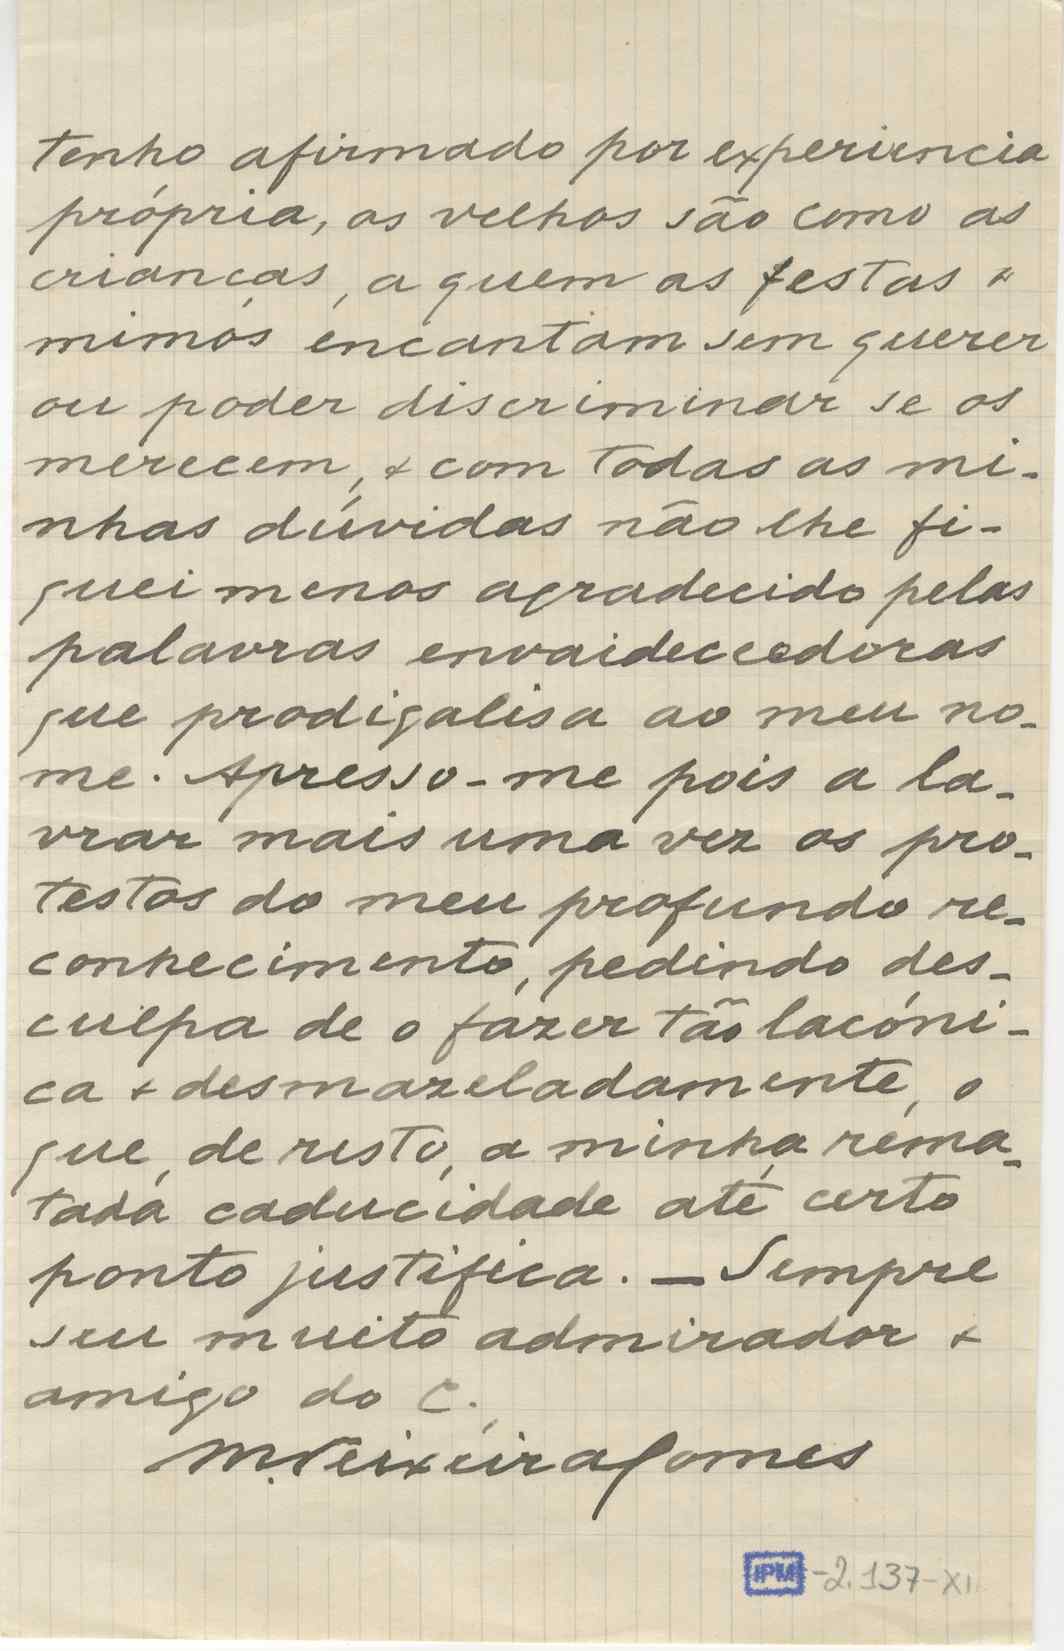 tenho afirmado por experiencia
própria, os velhos são como as
crianças, a quem as festas e
mimos encantam sem querer
ou poder discriminar se os
merecem, e com todas as mi-
nhas dúvidas não lhe fi-
quei menos agradecido pelas
palavras envaidecedoras
que prodigalisa ao meu no-
me. Apresso-me pois a la-
vrar mais uma vez os pro-
testos do meu profundo re-
conhecimento, pedindo des-
culpa de o fazer tão lacóni-
ca e desmazeladamente, o
que, de resto, a minha rema-
tada caducidade até certo
ponto justifica. — Sempre
seu muito admirador e
amigo do C.
M. Teixeira Gomes
IPM -2.137-XI